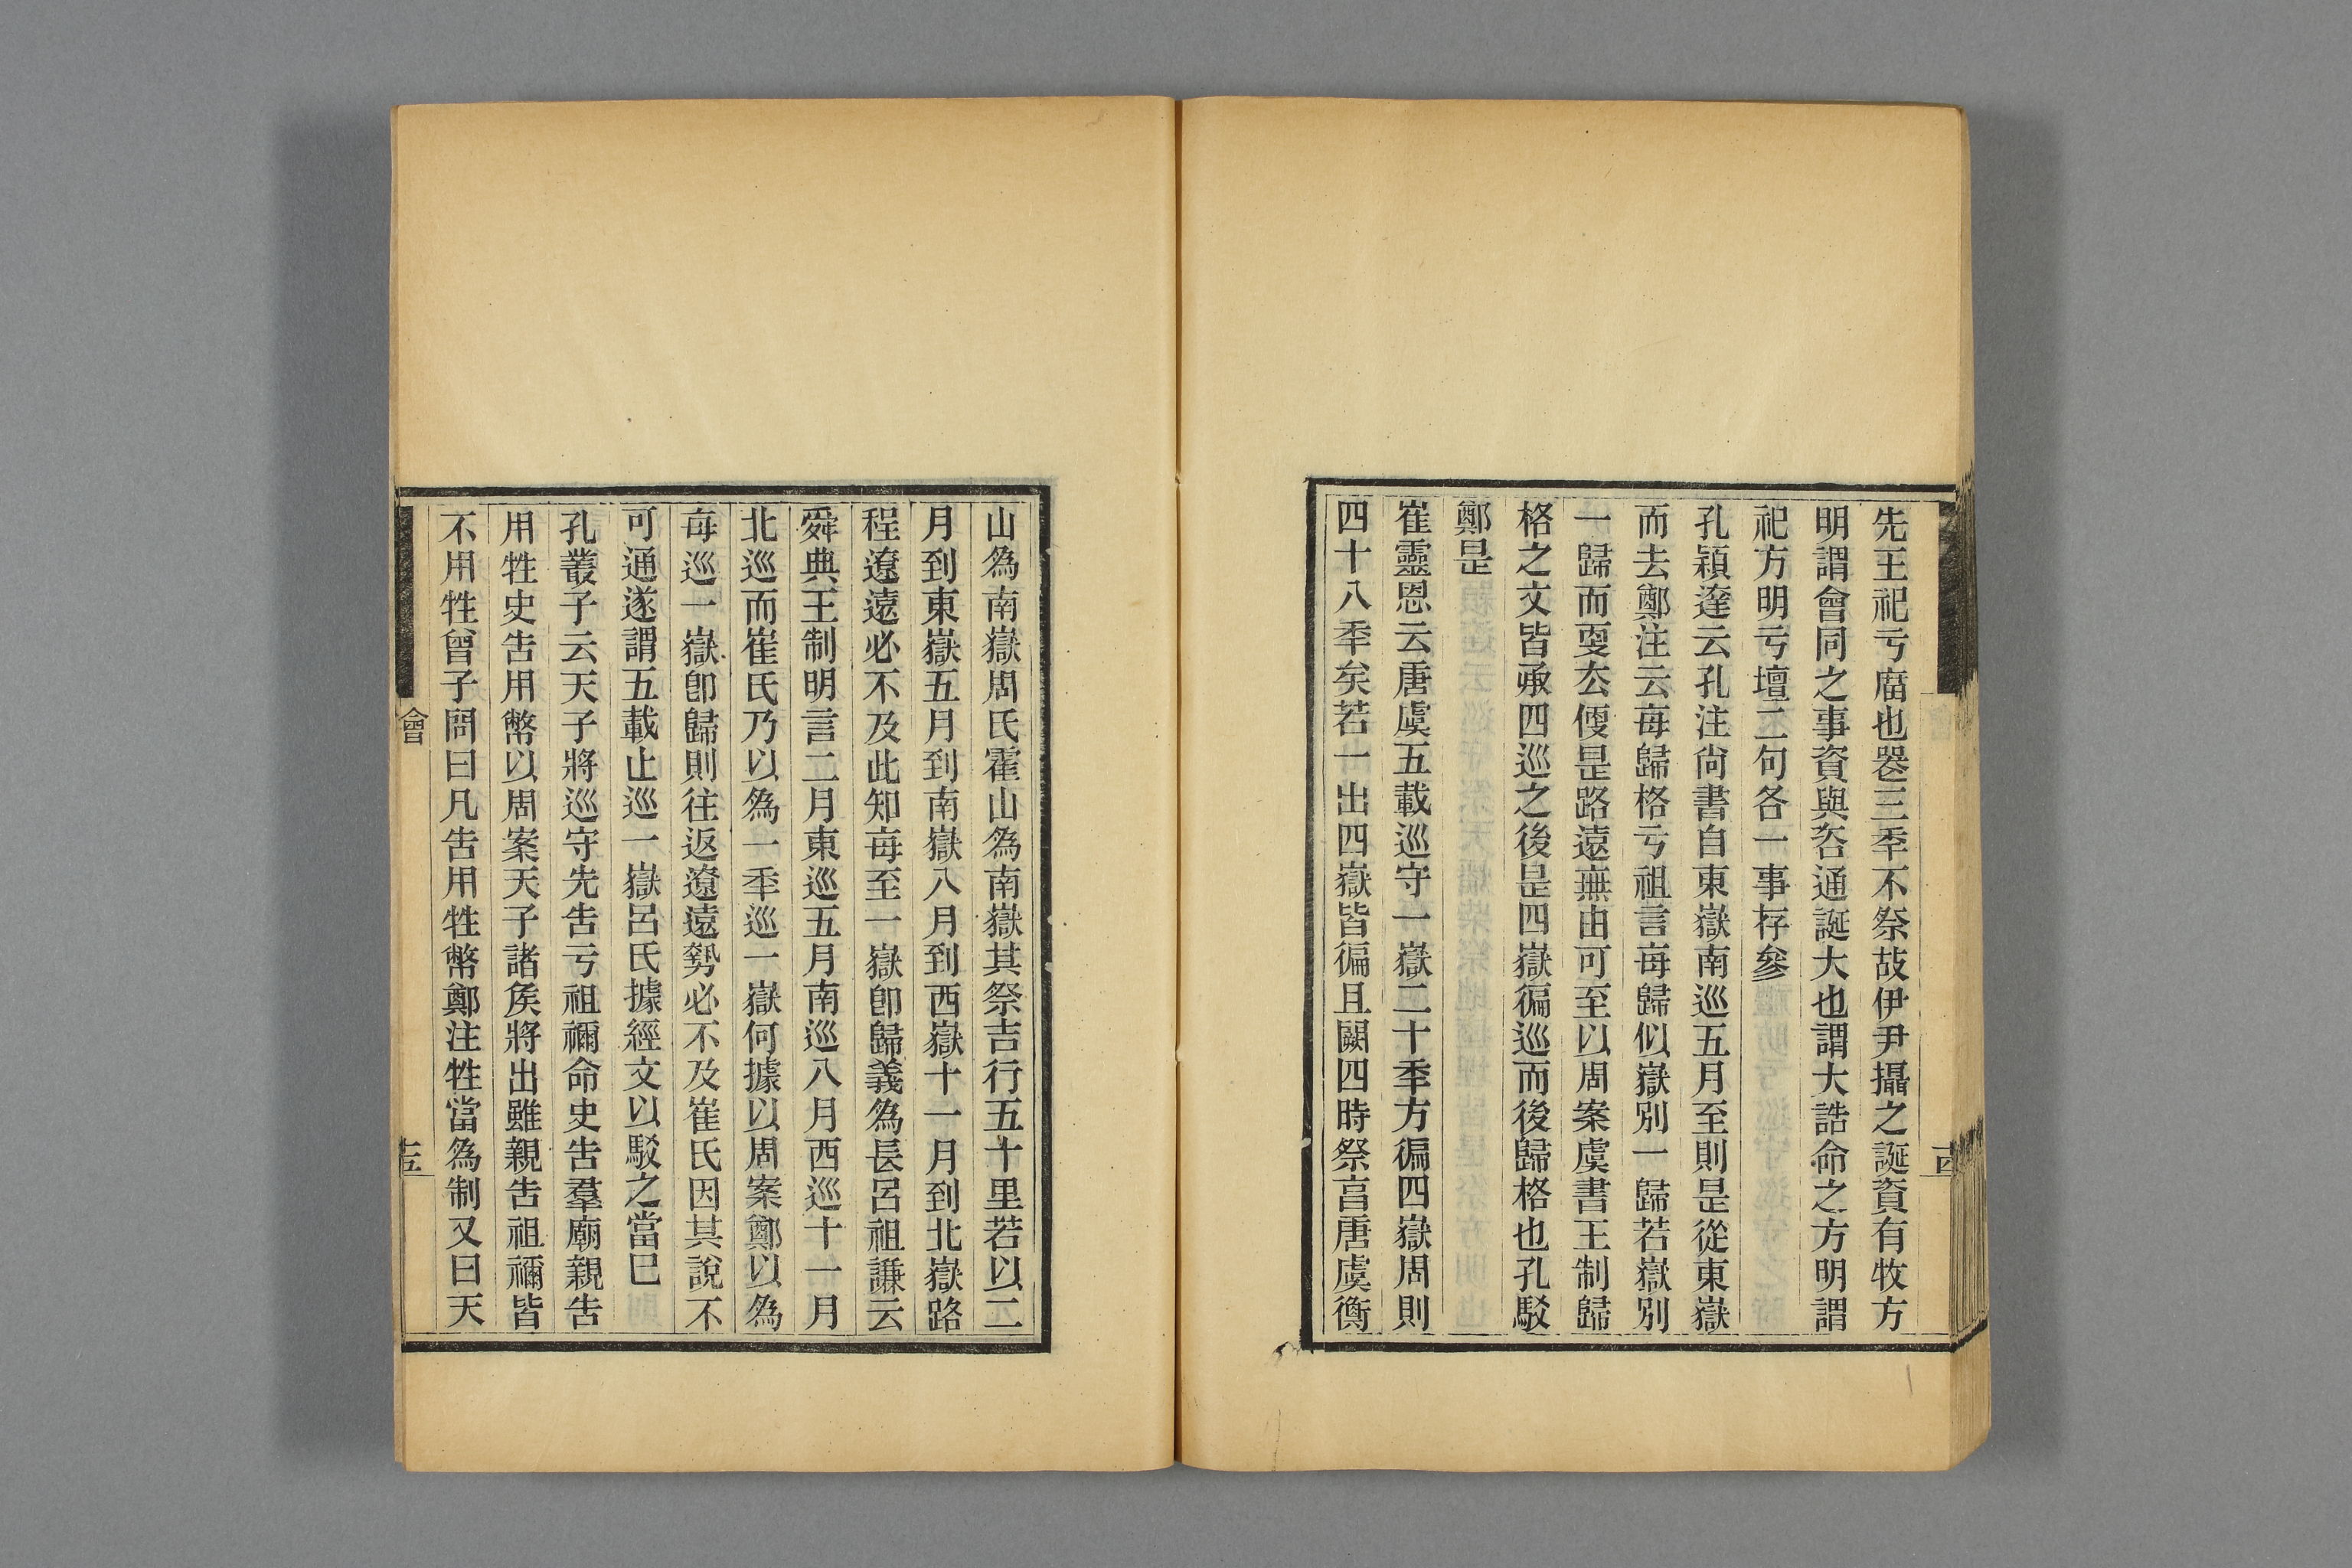 先王祀亏庿也噐三秊不祭故伊尹攝之誕資有牧方
明謂會同之事資與咨通誕大也謂大誥命之方明謂
祀方明亏壇二句各一事存參
孔穎達云孔注尚書自東嶽南巡五月至則是從東嶽
而去鄭注云每歸格亏祖言每歸似嶽別一歸若嶽別
一歸而更厺便是路遠無由可至以周案虞書王制歸
格之文皆承四巡之後是四嶽徧巡而後歸格也孔駁
鄭是
崔靈恩云唐虞五載巡守一嶽二十秊方徧四嶽周則
四十八秊矣若一出四嶽皆徧且闕四時祭亯唐虞衡
十四
山爲南嶽周氏霍山爲南嶽其祭吉行五十里若以二
月到東嶽五月到南嶽八月到西嶽十一月到北嶽路
程遼遠必不及此知每至一嶽卽歸義爲長呂祖謙云
舜典王制明言二月東巡五月南巡八月西巡十一月
北巡而崔氏乃以爲一秊巡一嶽何據以周案鄭以爲
每巡一嶽卽歸則往返遼遠勢必不及崔氏因其說不
可通遂謂五載止巡一嶽呂氏據經文以駁之當巳
孔叢子云天子將巡守先告亏祖禰命史告羣廟親告
用牲史告用幣以周案天子諸矦將出雖親告祖禰皆
不用牲曾子問曰凡告用牲幣鄭注牲當爲制又曰天
會
十五